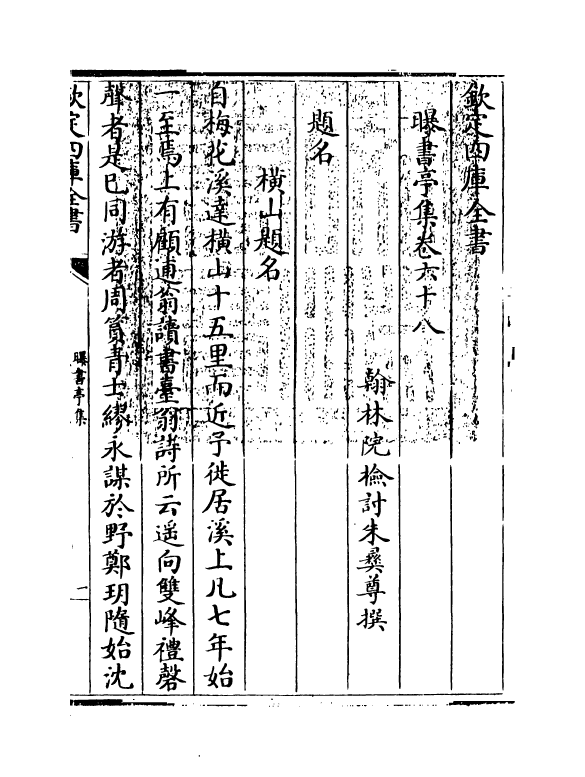 欽定四庫全書
曝書亭集卷六十八
翰林院檢討朱彝尊撰
題名
橫山題名
自梅花溪達橫山十五里而近予徙居溪上凡七年始
一至焉上有顧逋翁讀書臺翁詩所云遥向雙峰禮磬
聲者是已同游者周篔青士繆永謀於野鄭玥隨始沈
欽定四庫全書
曝書亭集
一